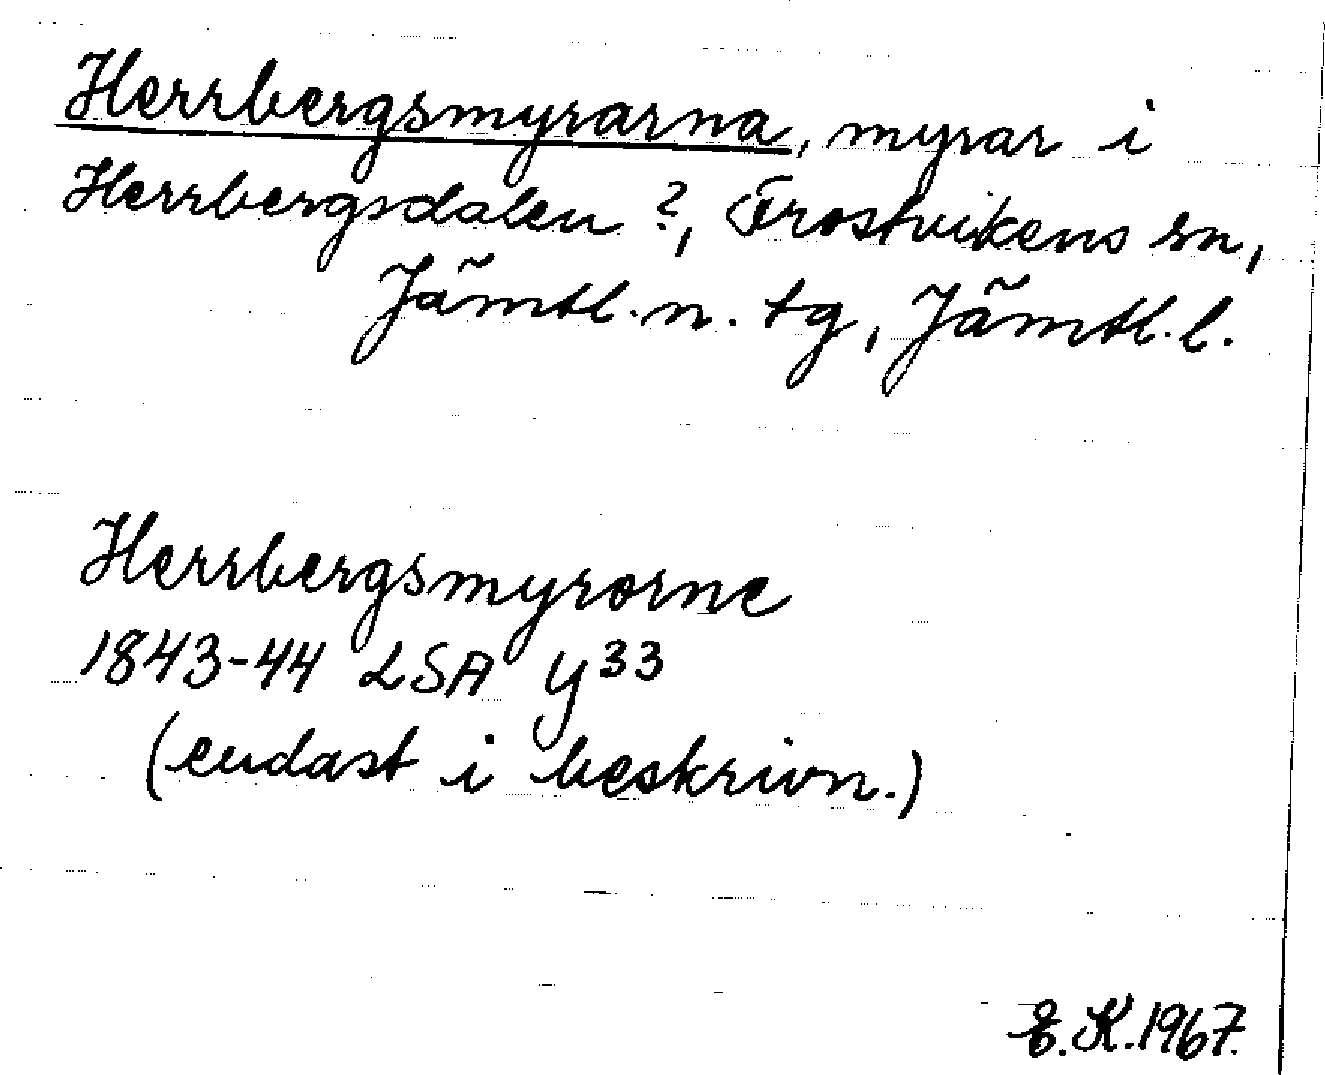 Herrbergsmyrarna, myrar i
Herrbergsdalen ?, Frostvikens sn,
Jämtl. n. tg, Jämtl. l.
Herrbergsmyrorne
1843-44 LSA Y33
(endast i beskrivn.)
E.K. 1967.